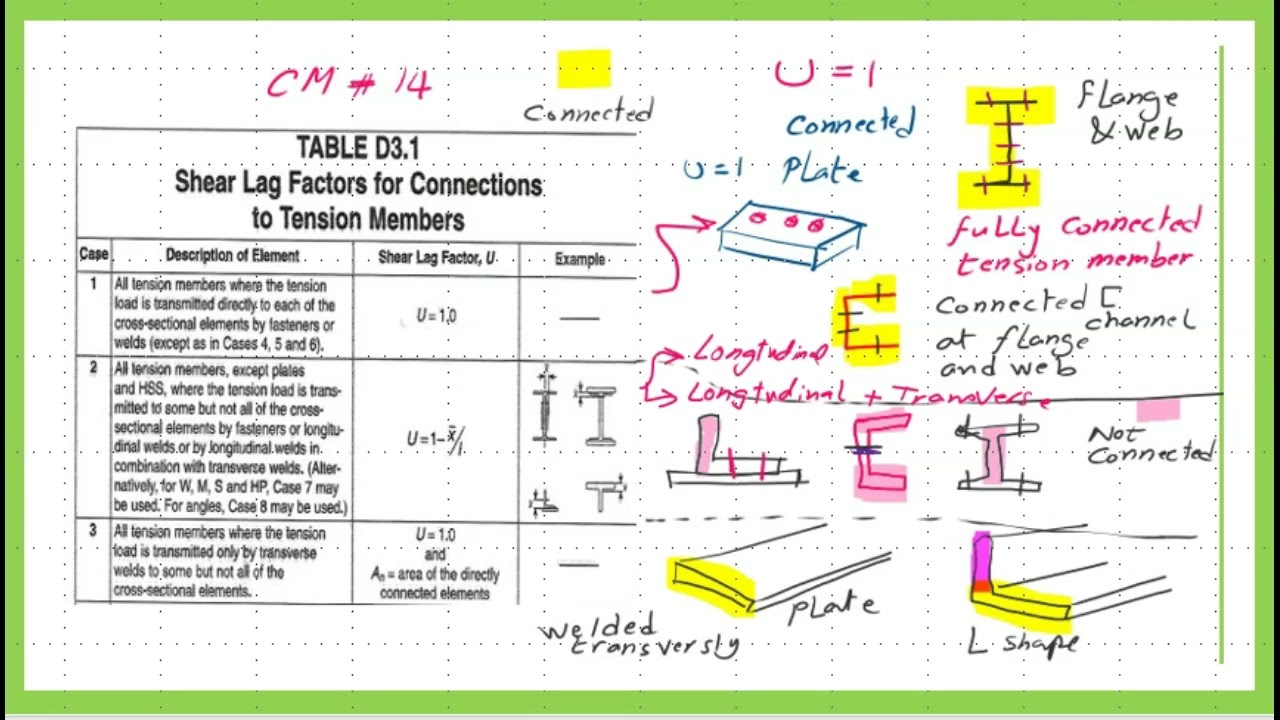 CM # 14
Connected
TABLE D3.1
Shear Lag Factors for Connections
to Tension Members
Case
Description of Element
Shear Lag Factor, U
Example
1
All tension members where the tension
load is transmitted directly to each of the
cross-sectional elements by fasteners or
welds (except as in Cases 4, 5 and 6).
U = 1.0
2
All tension members, except plates
and HSS, where the tension load is trans-
mitted to some but not all of the cross-
sectional elements by fasteners or longitu-
dinal welds or by longitudinal welds in
combination with transverse welds. (Alter-
natively, for W, M, S and HP, Case 7 may
be used. For angles, Case 8 may be used.)
U = 1– x̄/l
3
All tension members where the tension
load is transmitted only by transverse
welds to some but not all of the
cross-sectional elements.
U = 1.0
and
An = area of the directly
connected elements
welded
transversly
U = 1
Connected
U = 1 Plate
flange
& web
fully connected
tension member
Connected [
channel
at flange
and web
Longtudinal
Longtudinal + Transverse
Not
Connected
plate
L shape